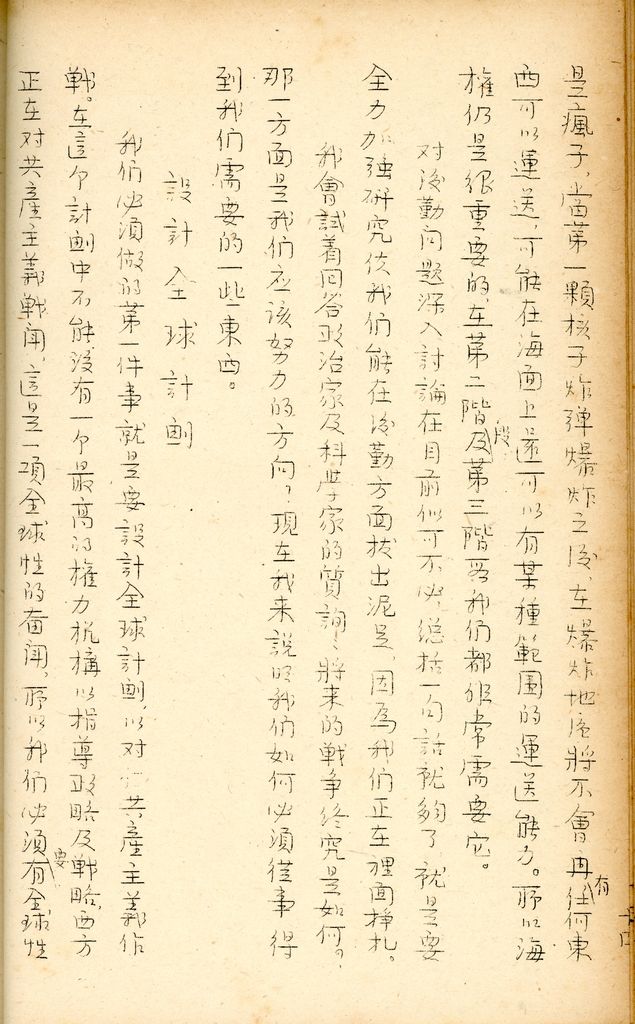 是瘋子，當第一顆核子炸弹爆炸之後，在爆炸地座將不會再有任何東
西可以運送，可能在海面上還可以有某種範围的運送能力。所以海
權仍是很重要的，在第二階段及第三階段我們都非常需要它。
对後勤问題深入討論在目前似可不必，總括一句話就夠了就是要
全力加强研究使我们能在後勤方面拔出泥足，因爲我们正在裡面掙札。
我會試着回答政治家及科学家的質詢：將来的戰争終究是如何？，
那一方面是我们应該努力的方向？現在我来説明我们如何必須從事得
到我们需要的一些東西。
設計全球計劃
我们必須做的第一件事就是要設計全球計劃，以对共產主義作
戰。在這个計劃中不能沒有一个最高的權力机構以指導政略及戰略，西方
正在对共產主義戰闻，這是一項全球性的奋闻，所以我们必須要有全球性